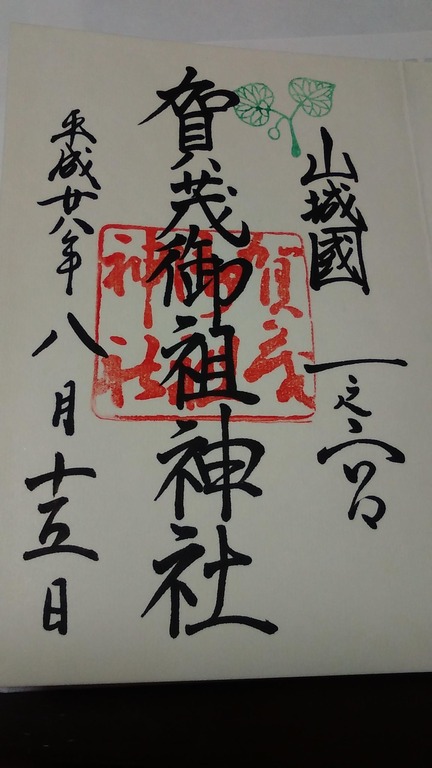 山城國 一之宮
賀茂御祖神社
平成廿八年八月十五日
賀茂
御祖
神社